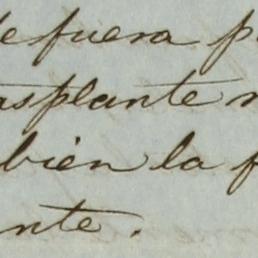 de fuera p
asplante n
bien la f
nte.